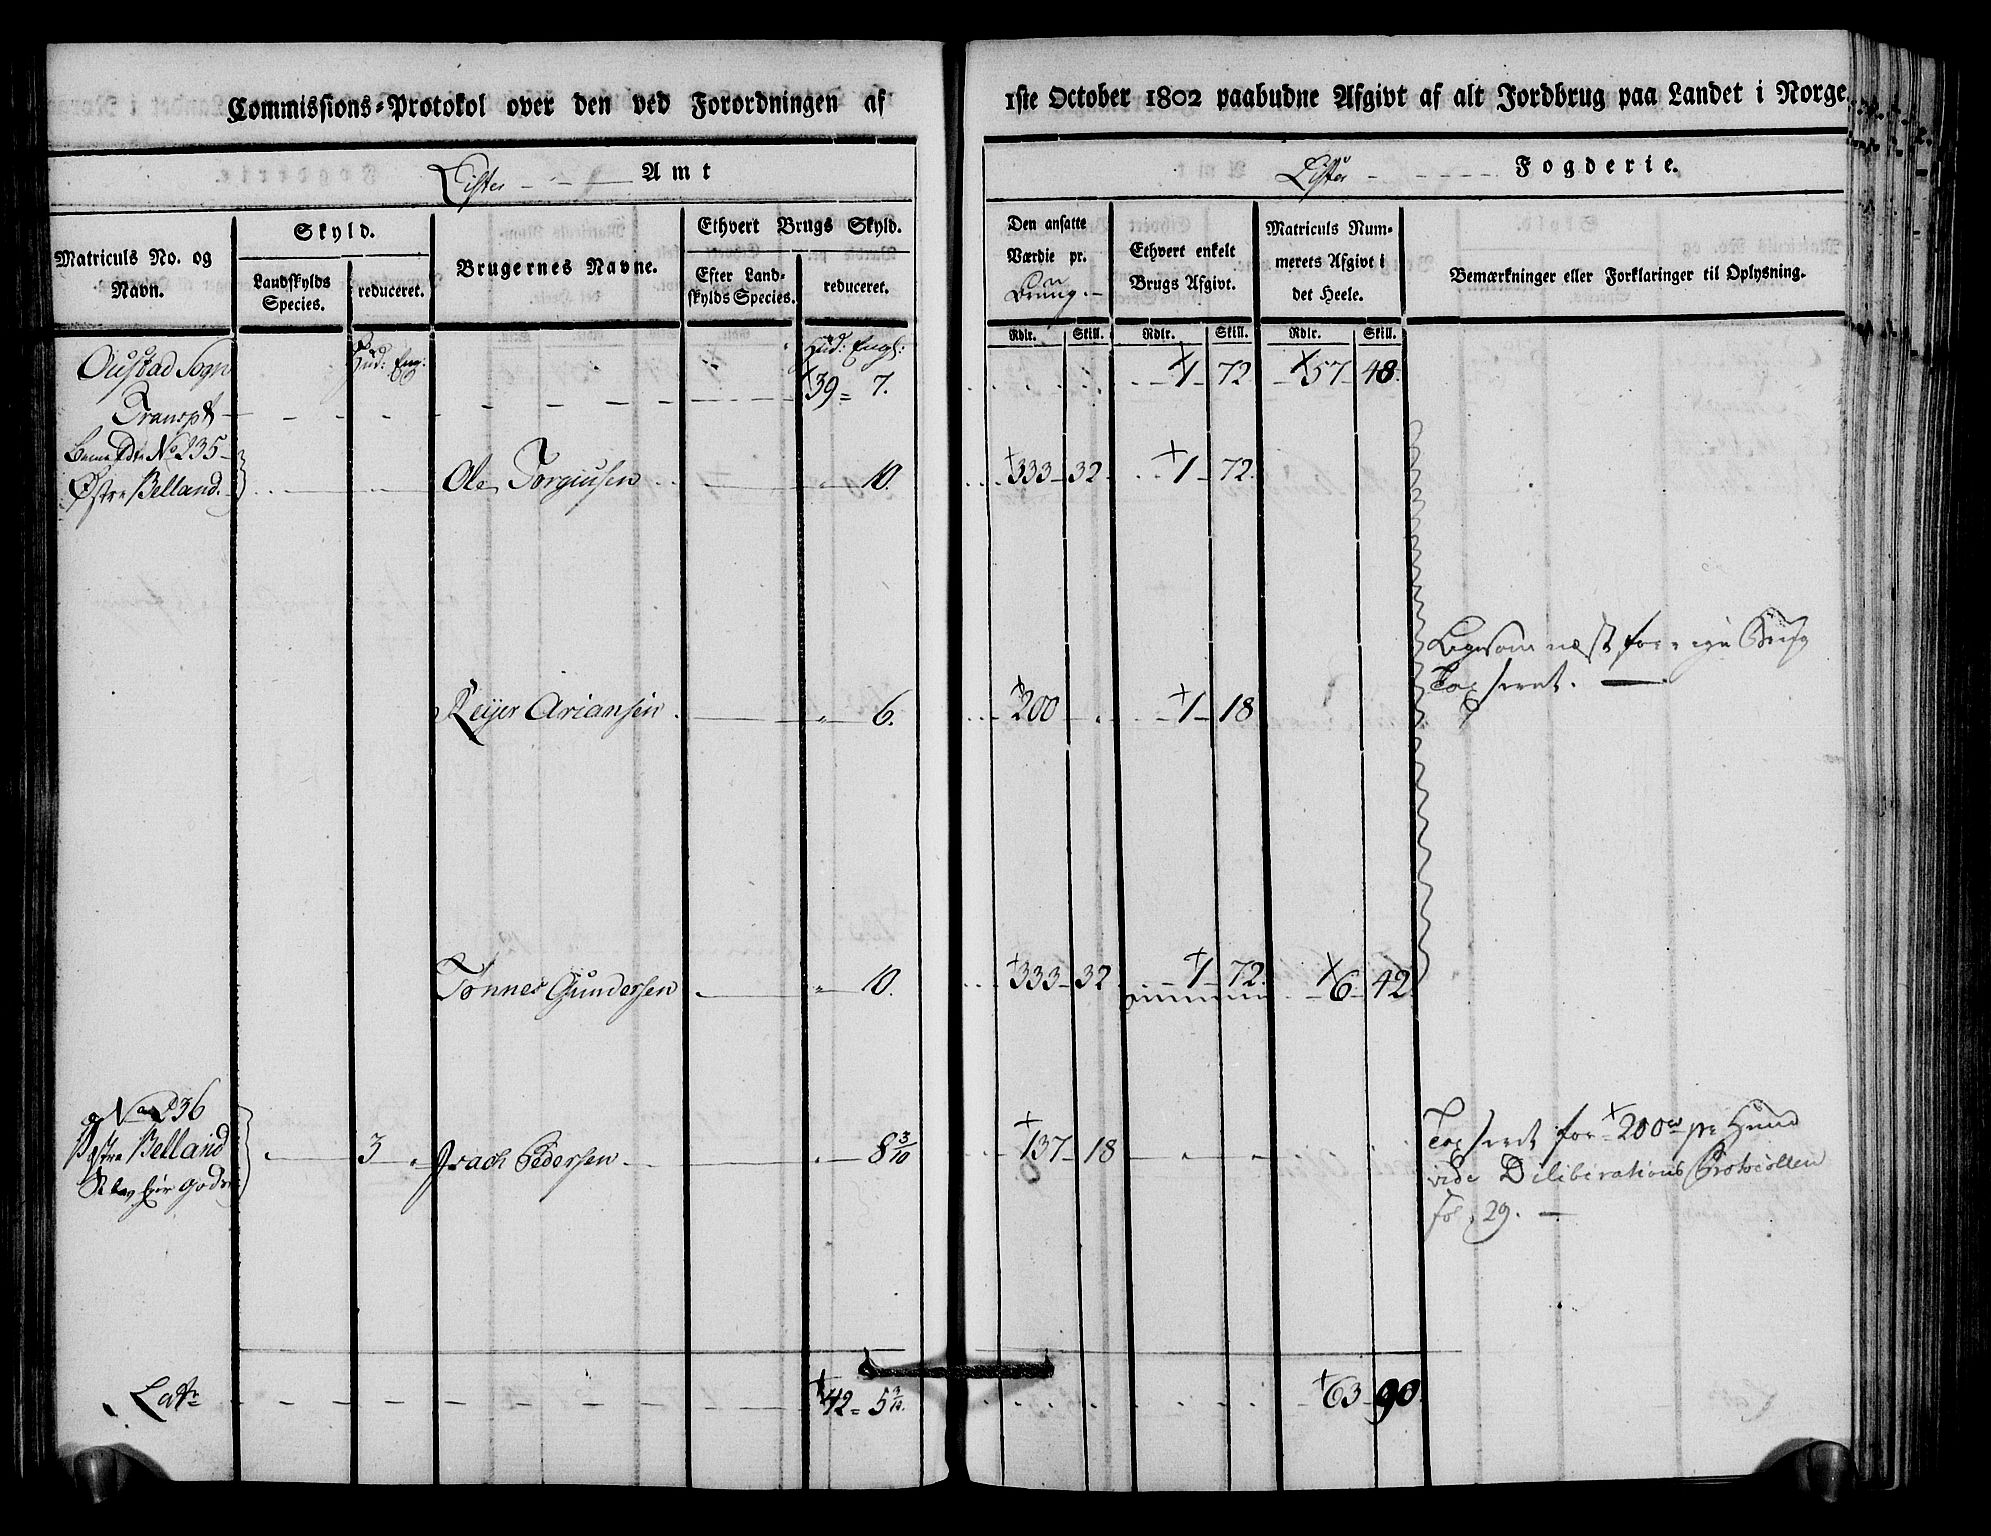 Commissions-Protokol over den ved Forordningen af
Lister Amt
Matriculs No. og Navn.
Skyld.
Landskylds Species.
reduceret.
Brugernes Navne.
Ethvert Brugs Skyld.
Efter Landskylds Species.
reduceret.
Oustad Sogn
Hud: Eng:
Hud: Engl:
Transpt
39 = 7.
No 235
Østre Belland.
Ole Torgiusen
" 10.
Reijer Ariansen
" 6.
Tønnes Gundersen
" 10.
No 236
Belland
3
Isach Pedersen
8 3/10
Lat.
42 = 5 3/10.
1ste October 1802 paabudne Afgivt af alt Jordbrug paa Landet i Norge.
Lister Fogderie.
Den ansatte Værdie pr.
Brug.
Ethvert enkelt Brugs Afgivt.
Matriculs Nummerets Afgivt i det Heele.
Bemærkninger eller Forklaringer til Oplysning.
Rdlr. Skill. Rdlr. Skill. Rdlr. Skill.
1 72 57 48.
333 32 1 72
Ligesom næst forrige Brug
Taxseret.
200 1 18
333 32 1 72. 6 42
Taxseret for 200 rd pr Huud
137 18
vide Deliberations Protocollen
fol. 29.
63 90.